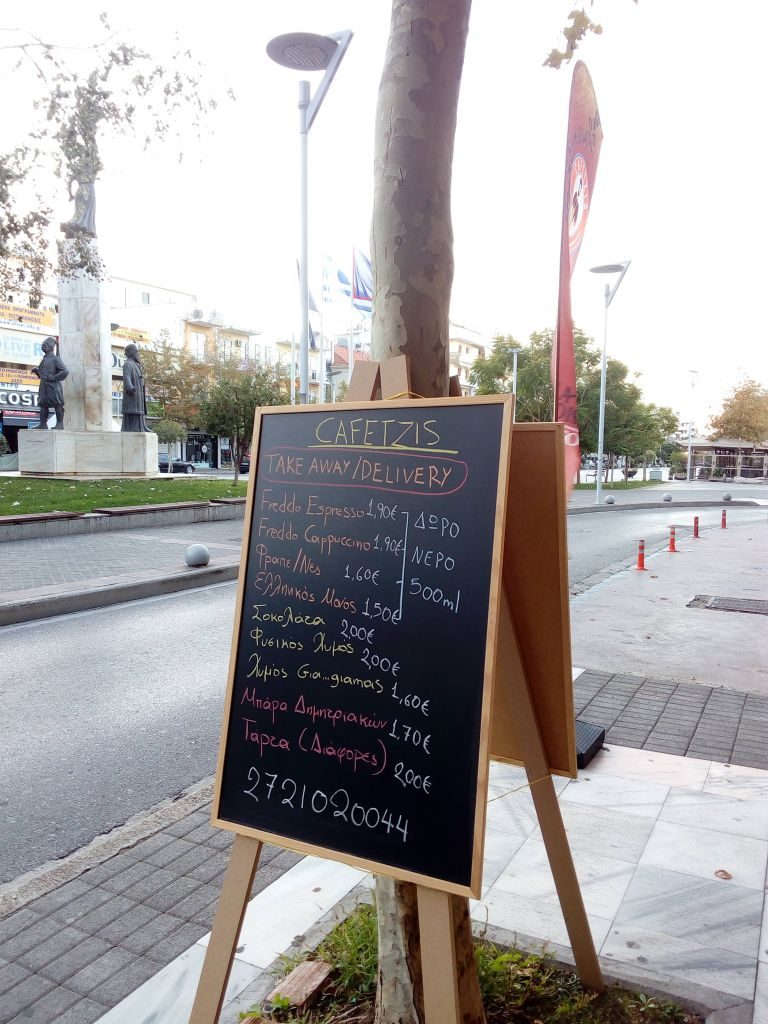 CAFETZIS
TAKE AWAY/DELIVERY
Freddo Espresso 1,90€
Freddo Cappuccino 1,90€
Φραπε/Νες 1,60€
Ελληνικός Μονός 1,50€
ΔΩΡΟ
ΝΕΡΟ
500ml
Σοκολάτα 2,00€
Φυσικός Χυμός 2,00€
Χυμός Gia...giamas 1,60€
Μπάρα Δημητριακών 1,70€
Τάρτα (Διάφορες) 2,00€
2721020044